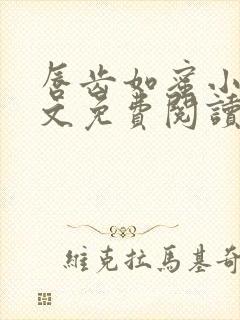 唇齿如蜜小
文免費閱讀
維克拉馬基奇